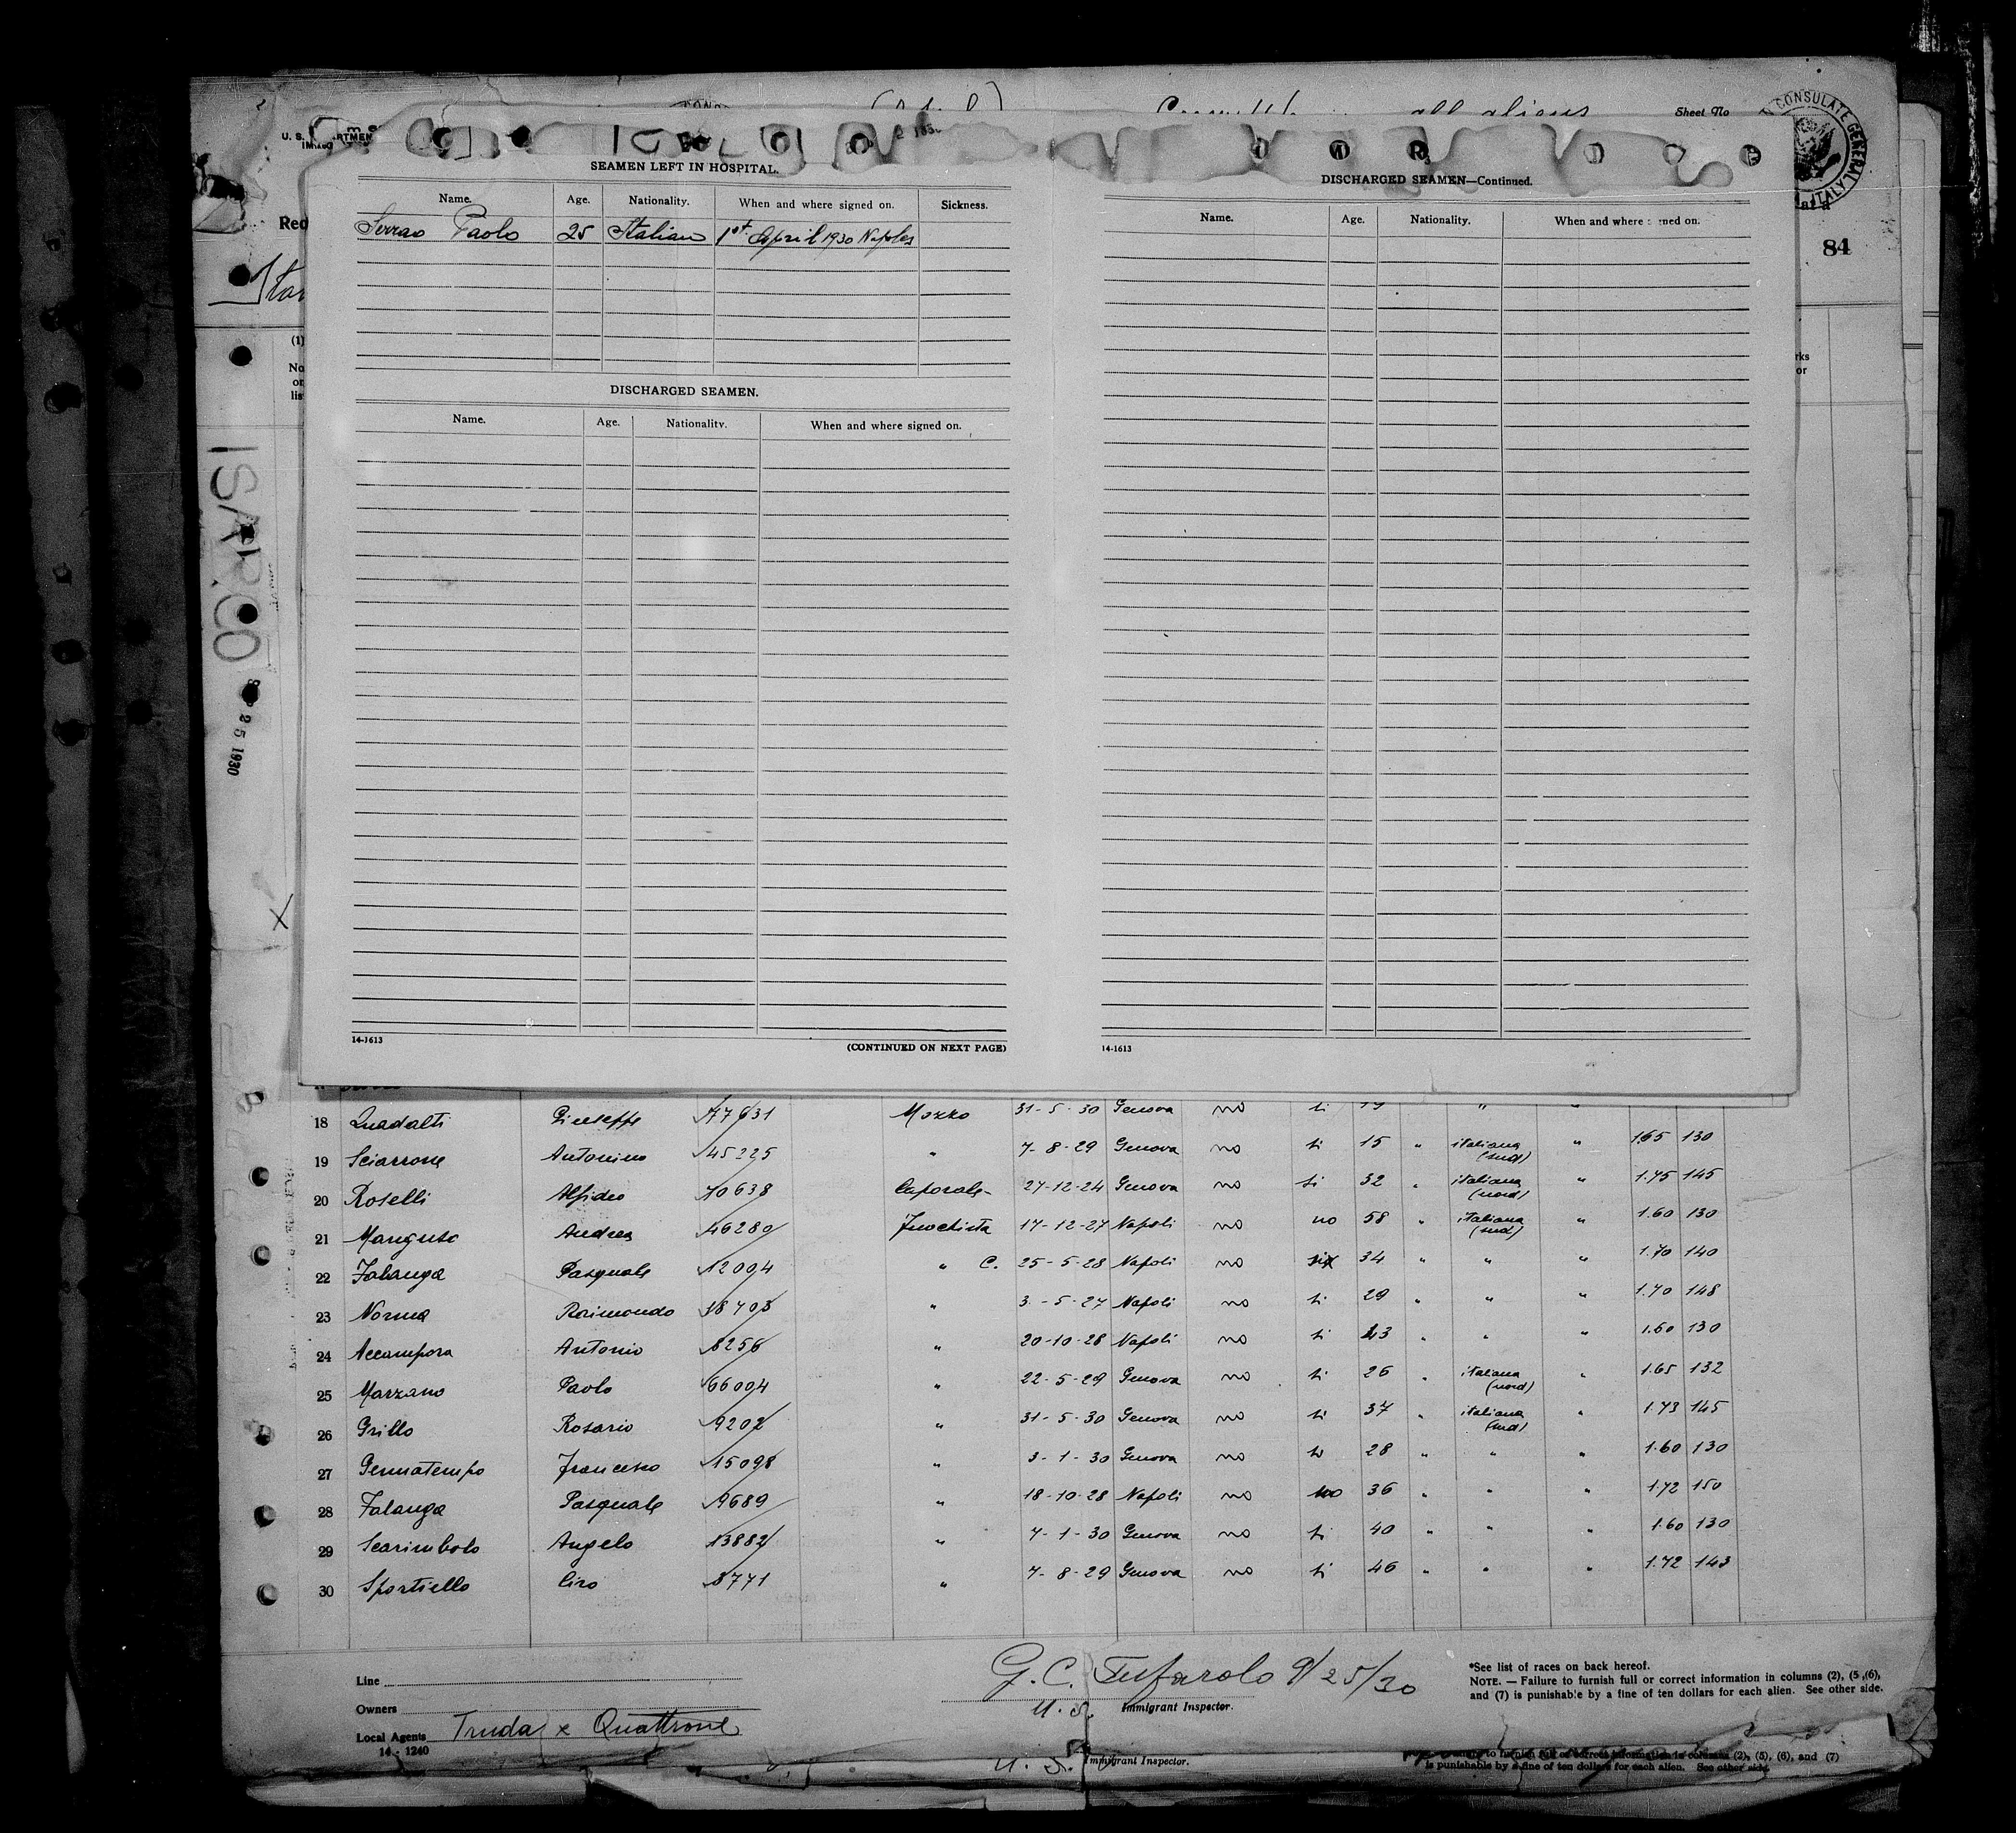 all aliens
Sheet No
CONSULATE GENERAL
ITALY
U. S.
SEAMEN LEFT IN HOSPITAL.
Name. Age. Nationality. When and where signed on. Sickness.
Serrao Paolo 25 Italian 1st April 1930 Naples
DISCHARGED SEAMEN.
Name. Age. Nationality. When and where signed on.
14-1613
(CONTINUED ON NEXT PAGE)
DISCHARGED SEAMEN—Continued.
Name. Age. Nationality. When and where signed on.
14-1613
84
Red
(1)
No
on
lis
ISARCO
25 1930
X
18 Quadalti Giuseppe 77631 Mozzo 31-5-30 Genova no si 19 " "
19 Sciarrone Antonino 45225 " 7-8-29 Genova no si 15 " italiana (sud) " 1.65 130
20 Roselli Alfideo 70638 Caporale- 27-12-24 Genova no si 32 " italiana (nord) " 1.75 145
21 Manguso Andrea 46280 Fuochista 17-12-27 Napoli no no 58 " italiana (sud) " 1.60 130
22 Falanga Pasquale 12094 " C. 25-5-28 Napoli no 34 " " " 1.70 140
23 Norma Raimondo 18703 " 3-5-27 Napoli no si 29 " " " 1.70 148
24 Accampora Antonio 8256 " 20-10-28 Napoli no si 23 " " " 1.60 130
25 Marzano Paolo 66004 " 22-5-29 Genova no si 26 " italiana (nord) " 1.65 132
26 Grillo Rosario 9202 " 31-5-30 Genova no si 37 " italiana (sud) " 1.73 145
27 Gennatempo Francesco 15098 " 3-1-30 Genova no si 28 " " " 1.60 130
28 Falanga Pasquale 9689 " 18-10-28 Napoli no no 36 " " " 1.72 150
29 Scarimbolo Angelo 13882 " 7-1-30 Genova no si 40 " " " 1.60 130
30 Sportiello Ciro 8771 " 7-8-29 Genova no si 46 " " " 1.72 143
Line
Owners
Local Agents Truda & Quattrone
14-1240
G. C. Tufarolo 9/25/30
U. S. Immigrant Inspector.
*See list of races on back hereof.
NOTE. — Failure to furnish full or correct information in columns (2), (5), (6),
and (7) is punishable by a fine of ten dollars for each alien. See other side.
U. S. Immigrant Inspector.
to furnish full or correct information in columns (2), (5), (6), and (7)
is punishable by a fine of ten dollars for each alien. See other side.